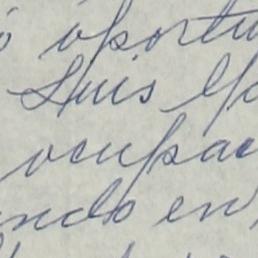 ó oportu
Luis Go
ocupac
ando en